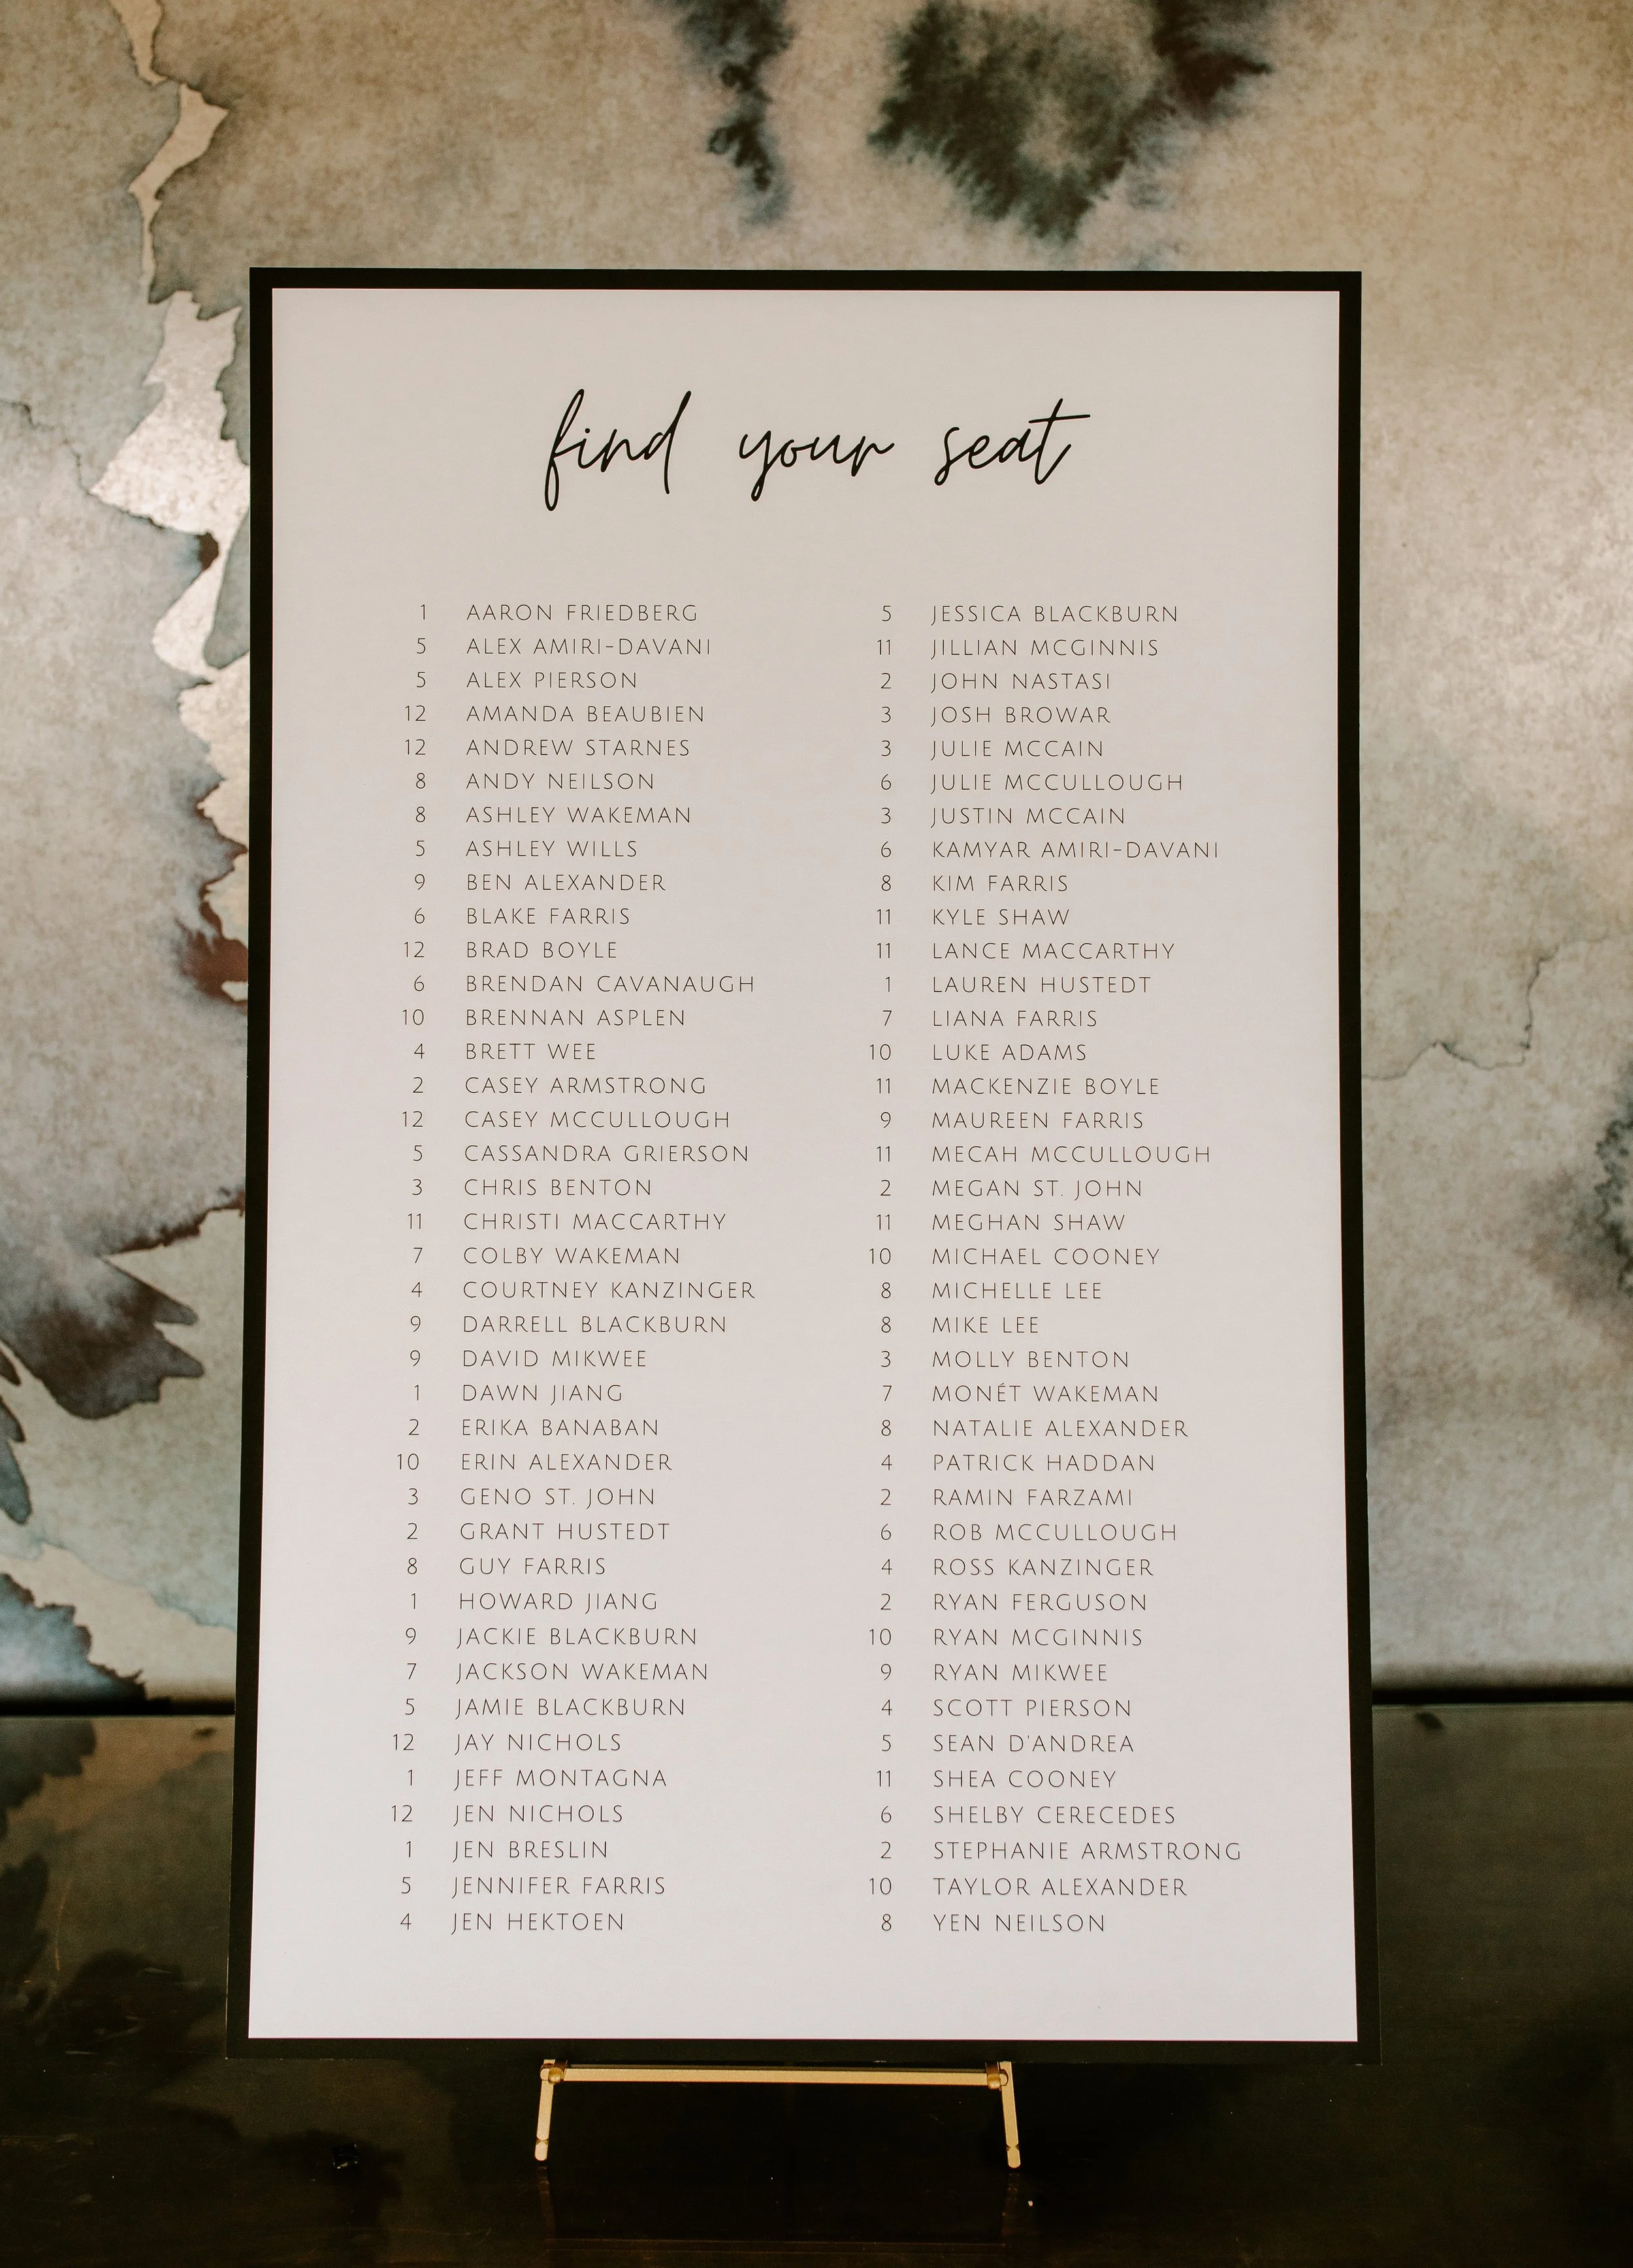 find your seat
1 AARON FRIEDBERG
5 ALEX AMIRI-DAVANI
5 ALEX PIERSON
12 AMANDA BEAUBIEN
12 ANDREW STARNES
8 ANDY NEILSON
8 ASHLEY WAKEMAN
5 ASHLEY WILLS
9 BEN ALEXANDER
6 BLAKE FARRIS
12 BRAD BOYLE
6 BRENDAN CAVANAUGH
10 BRENNAN ASPLEN
4 BRETT WEE
2 CASEY ARMSTRONG
12 CASEY MCCULLOUGH
5 CASSANDRA GRIERSON
3 CHRIS BENTON
11 CHRISTI MACCARTHY
7 COLBY WAKEMAN
4 COURTNEY KANZINGER
9 DARRELL BLACKBURN
9 DAVID MIKWEE
1 DAWN JIANG
2 ERIKA BANABAN
10 ERIN ALEXANDER
3 GENO ST. JOHN
2 GRANT HUSTEDT
8 GUY FARRIS
1 HOWARD JIANG
9 JACKIE BLACKBURN
7 JACKSON WAKEMAN
5 JAMIE BLACKBURN
12 JAY NICHOLS
1 JEFF MONTAGNA
12 JEN NICHOLS
1 JEN BRESLIN
5 JENNIFER FARRIS
4 JEN HEKTOEN
5 JESSICA BLACKBURN
11 JILLIAN MCGINNIS
2 JOHN NASTASI
3 JOSH BROWAR
3 JULIE MCCAIN
6 JULIE MCCULLOUGH
3 JUSTIN MCCAIN
6 KAMYAR AMIRI-DAVANI
8 KIM FARRIS
11 KYLE SHAW
11 LANCE MACCARTHY
1 LAUREN HUSTEDT
7 LIANA FARRIS
10 LUKE ADAMS
11 MACKENZIE BOYLE
9 MAUREEN FARRIS
11 MECAH MCCULLOUGH
2 MEGAN ST. JOHN
11 MEGHAN SHAW
10 MICHAEL COONEY
8 MICHELLE LEE
8 MIKE LEE
3 MOLLY BENTON
7 MONÉT WAKEMAN
8 NATALIE ALEXANDER
4 PATRICK HADDAN
2 RAMIN FARZAMI
6 ROB MCCULLOUGH
4 ROSS KANZINGER
2 RYAN FERGUSON
10 RYAN MCGINNIS
9 RYAN MIKWEE
4 SCOTT PIERSON
5 SEAN D'ANDREA
11 SHEA COONEY
6 SHELBY CERECEDES
2 STEPHANIE ARMSTRONG
10 TAYLOR ALEXANDER
8 YEN NEILSON